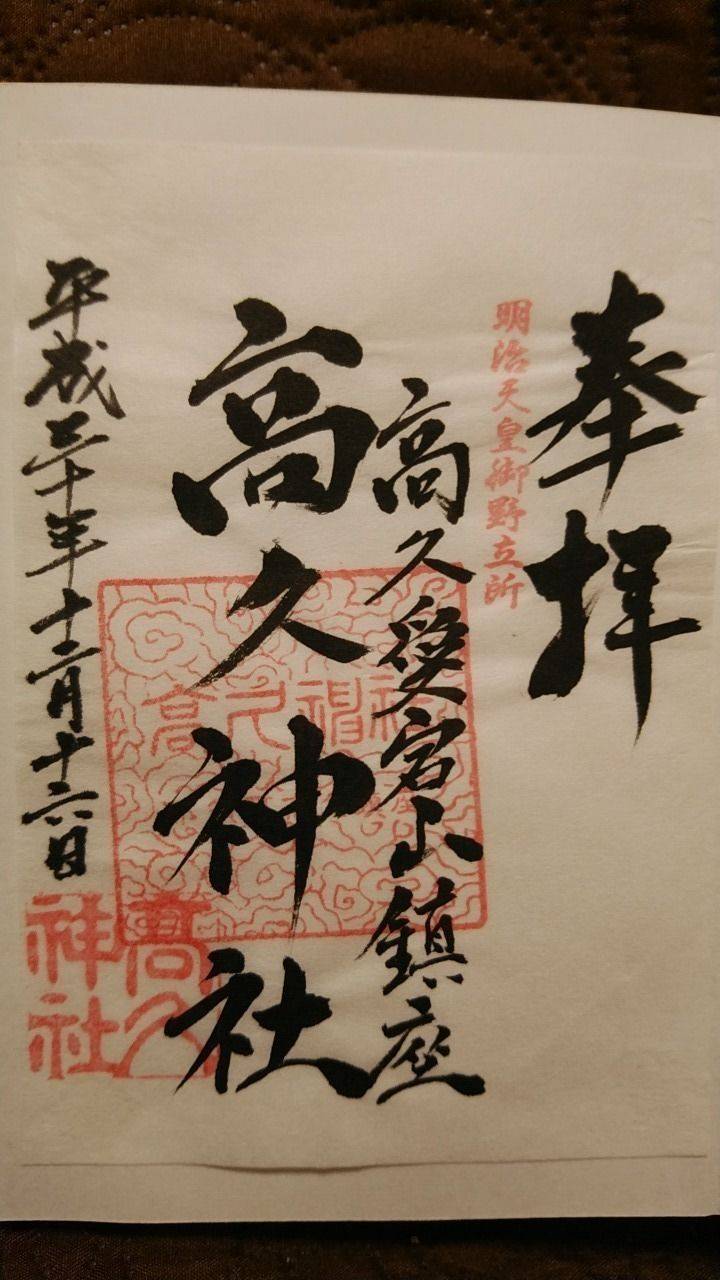 奉拝
明治天皇御野立所
高久愛宕山鎮座
高久神社
平成三十年十二月十六日
高久
神社